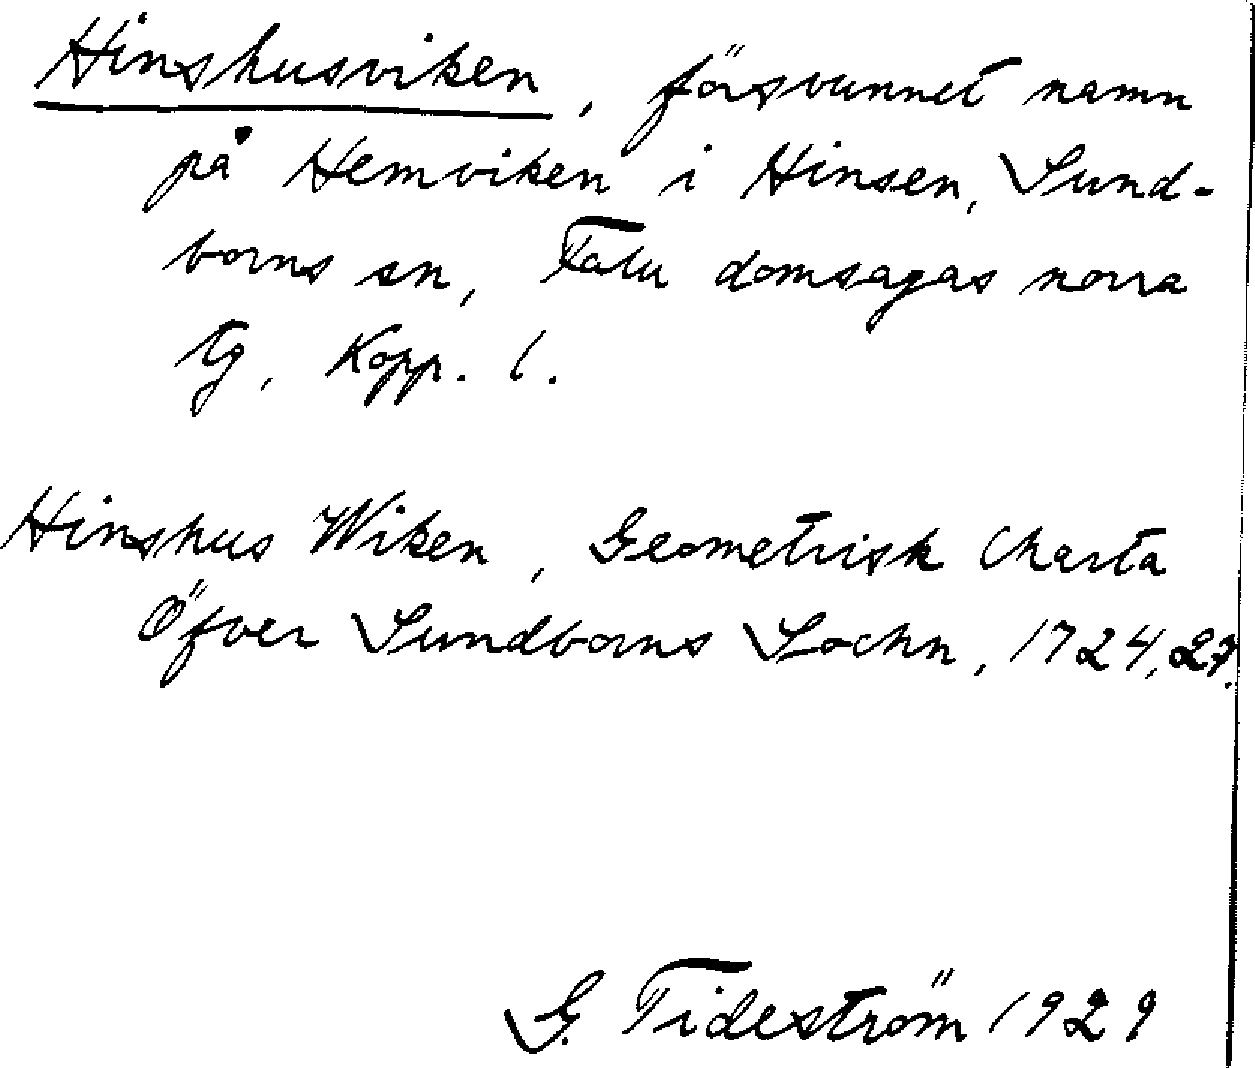 Hinshusviken, försvunnet namn
på Hemviken i Hinsen, Sund-
borns sn, Falu domsagas norra
tg, Kopp. l.
Hinshus Wiken, Geometrisk Charta
Öfver Sundborns Sochn, 1724, 27.
G. Tideström 1929